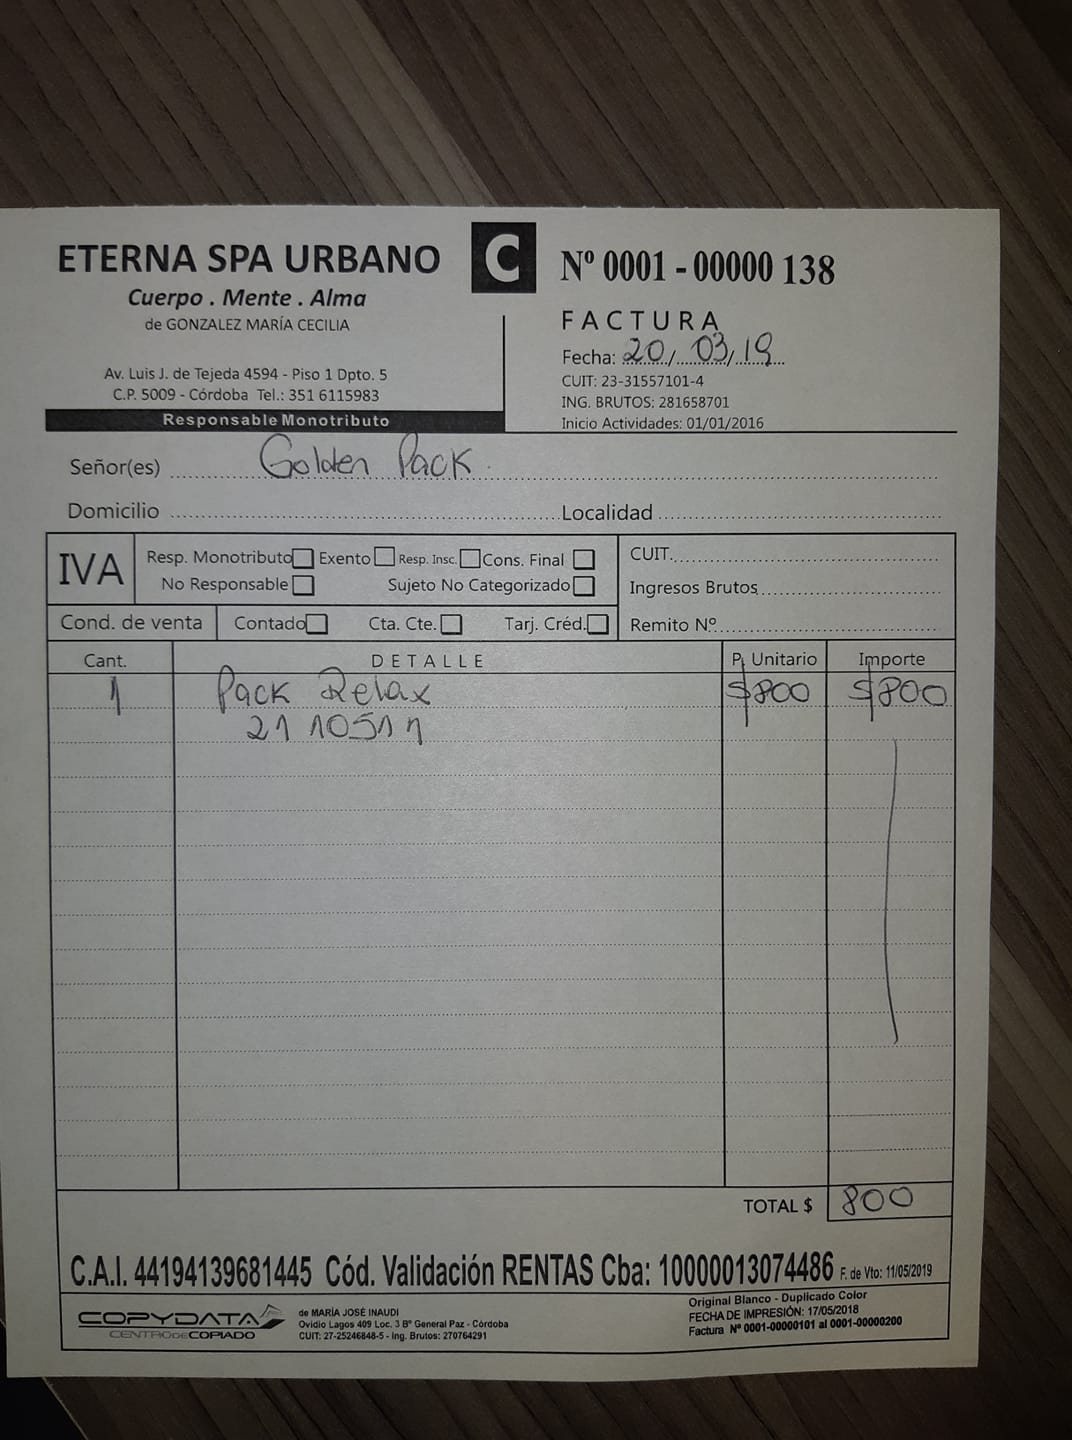 ETERNA SPA URBANO
Cuerpo . Mente . Alma
de GONZALEZ MARÍA CECILIA
Av. Luis J. de Tejeda 4594 - Piso 1 Dpto. 5
C.P. 5009 - Córdoba Tel.: 351 6115983
Responsable Monotributo
C
Nº 0001 - 00000 138
FACTURA
Fecha: 20/03/19
CUIT: 23-31557101-4
ING. BRUTOS: 281658701
Inicio Actividades: 01/01/2016
Señor(es) Golden Pack
Domicilio Localidad
IVA
Resp. Monotributo Exento Resp. Insc. Cons. Final
No Responsable Sujeto No Categorizado
CUIT.
Ingresos Brutos
Cond. de venta Contado Cta. Cte. Tarj. Créd. Remito Nº
Cant. DETALLE P. Unitario Importe
1 Pack Relax $800 $800
21 10511
TOTAL $ 800
C.A.I. 44194139681445 Cód. Validación RENTAS Cba: 10000013074486 F. de Vto: 11/05/2019
COPYDATA
CENTRO DE COPIADO
de MARÍA JOSÉ INAUDI
Ovidio Lagos 409 Loc. 3 Bº General Paz - Córdoba
CUIT: 27-25246848-5 - Ing. Brutos: 270764291
Original Blanco - Duplicado Color
FECHA DE IMPRESIÓN: 17/05/2018
Factura Nº 0001-00000101 al 0001-00000200